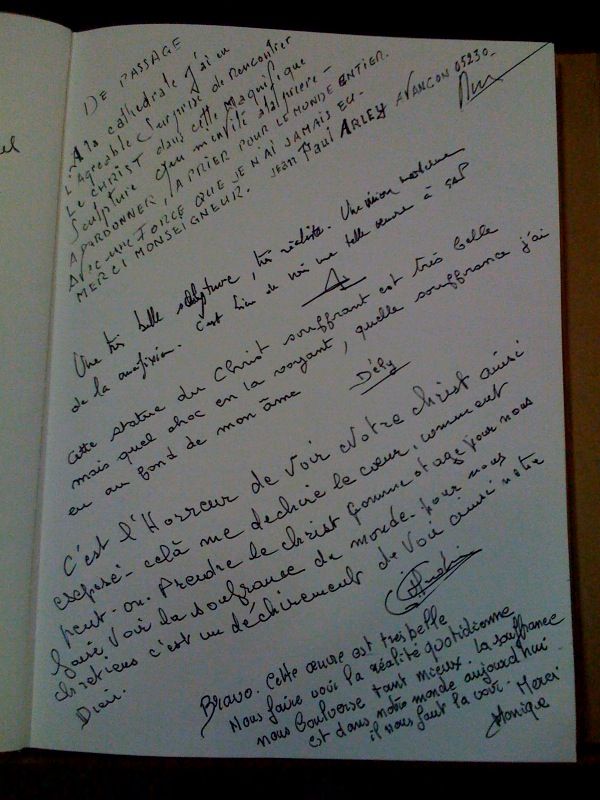 el
DE PASSAGE
A la cathédrale j'ai eu
L'agréable surprise de rencontrer
Le CHRIST dans cette Magnifique
Sculpture qui m'invite à la prière -
A PARDONNER, A PRIER POUR LE MONDE ENTIER.
AVEC UNE FORCE QUE JE N'AI JAMAIS EU -
MERCI MONSEIGNEUR. Jean Paul ARLEY AVANCON 05230_
Une très belle sculpture, très réaliste. Une vision moderne
de la crucifixion. c'est bien de voir une telle œuvre à GAP
Cette statue du Christ souffrant est très belle
mais quel choc en la voyant, quelle souffrance j'ai
eu au fond de mon âme Dély
C'est l'Horreur de voir Notre Christ ainsi
exposé - celà me déchire le cœur, comment
peut-on. Prendre le christ comme otage pour nous
faire voir la soufrance du monde. pour nous
chrétiens c'est un déchirement de voir ainsi notre
Dieu.
Bravo. Cette œuvre est très belle
Nous faire voir la réalité quotidienne
nous bouleverse tant mieux. la souffrance
est dans notre monde aujourd'hui
il nous faut la voir. Merci
Monique